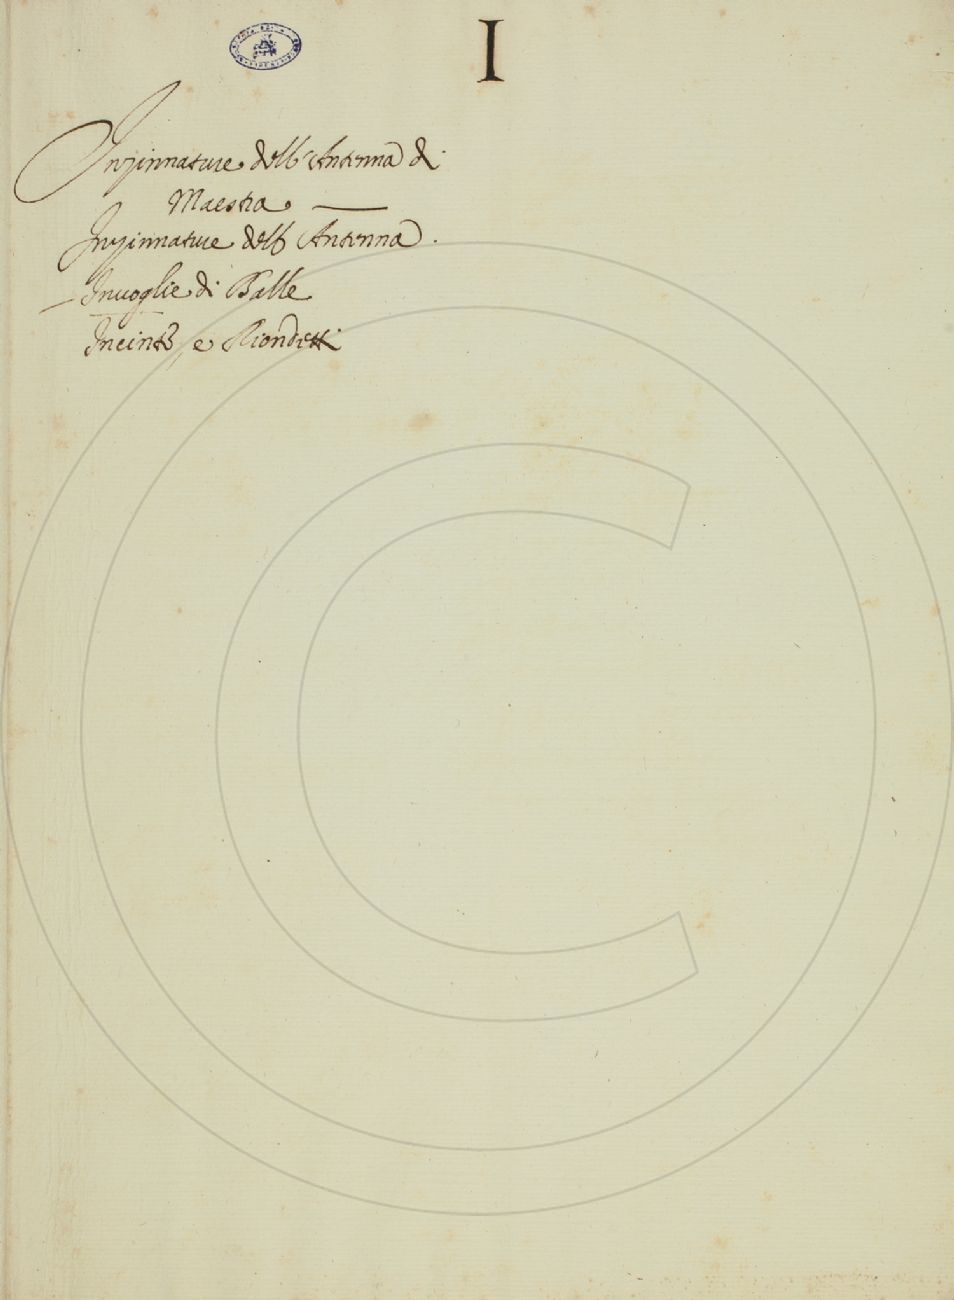 I
Inginnature dell'Antenna di
Maestra
Inginnature dell'Antenna
Inuoglie di Balle
Incinte, e Riondetti